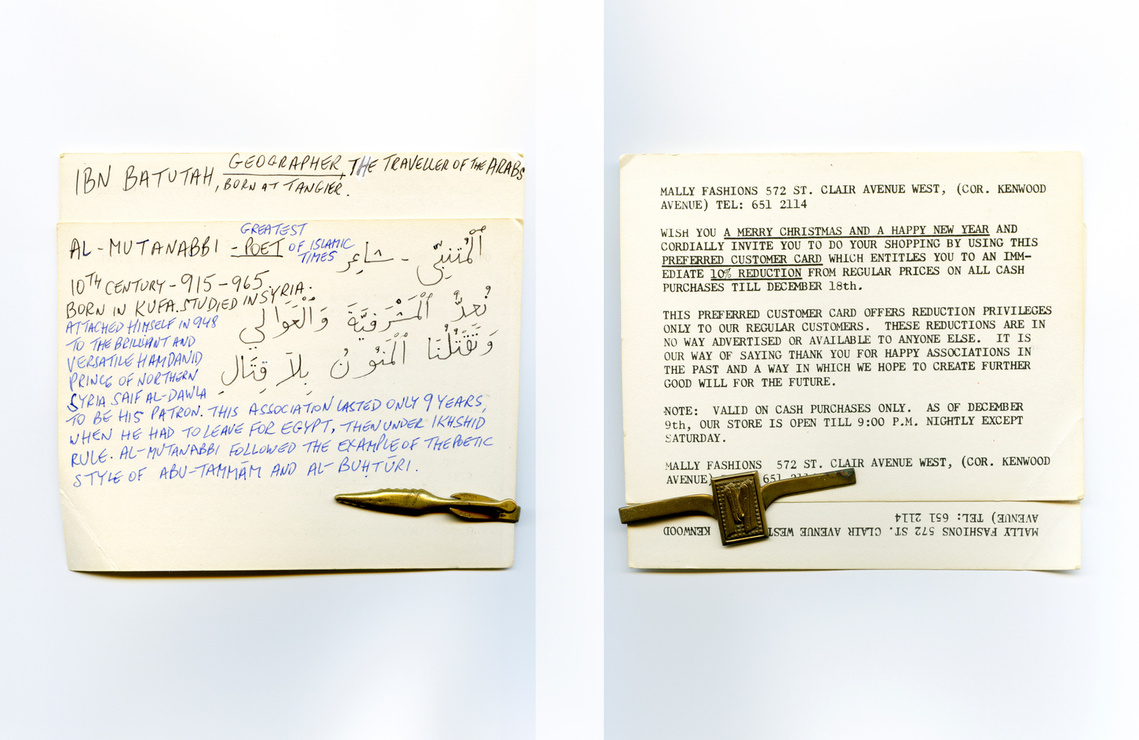 IBN BATUTAH, GEOGRAPHER, THE TRAVELLER OF THE ARABS
BORN AT TANGIER.
AL-MUTANABBI - POET GREATEST OF ISLAMIC TIMES اَلْمُتَنَبِّي - شاعِر
10TH CENTURY - 915-965.
BORN IN KUFA. STUDIED IN SYRIA.
نُعِدُّ اَلْمَشْرَفِيَّةَ وَاَلْعَوَالِي
وَتَقْتُلُنَا اَلْمَنُونُ بِلَا قِتَالِ
ATTACHED HIMSELF IN 948
TO THE BRILLIANT AND
VERSATILE HAMDANID
PRINCE OF NORTHERN
SYRIA SAIF AL-DAWLA
TO BE HIS PATRON. THIS ASSOCIATION LASTED ONLY 9 YEARS,
WHEN HE HAD TO LEAVE FOR EGYPT, THEN UNDER IKHSHID
RULE. AL-MUTANABBI FOLLOWED THE EXAMPLE OF THE POETIC
STYLE OF ABU-TAMMĀM AND AL-BUḤTŪRI.
MALLY FASHIONS 572 ST. CLAIR AVENUE WEST, (COR. KENWOOD
AVENUE) TEL: 651 2114
WISH YOU A MERRY CHRISTMAS AND A HAPPY NEW YEAR AND
CORDIALLY INVITE YOU TO DO YOUR SHOPPING BY USING THIS
PREFERRED CUSTOMER CARD WHICH ENTITLES YOU TO AN IMM-
EDIATE 10% REDUCTION FROM REGULAR PRICES ON ALL CASH
PURCHASES TILL DECEMBER 18th.
THIS PREFERRED CUSTOMER CARD OFFERS REDUCTION PRIVILEGES
ONLY TO OUR REGULAR CUSTOMERS. THESE REDUCTIONS ARE IN
NO WAY ADVERTISED OR AVAILABLE TO ANYONE ELSE. IT IS
OUR WAY OF SAYING THANK YOU FOR HAPPY ASSOCIATIONS IN
THE PAST AND A WAY IN WHICH WE HOPE TO CREATE FURTHER
GOOD WILL FOR THE FUTURE.
NOTE: VALID ON CASH PURCHASES ONLY. AS OF DECEMBER
9th, OUR STORE IS OPEN TILL 9:00 P.M. NIGHTLY EXCEPT
SATURDAY.
MALLY FASHIONS 572 ST. CLAIR AVENUE WEST, (COR. KENWOOD
651
MALLY FASHIONS 572 ST. CLAIR AVENUE WEST KENWOOD
AVENUE) TEL: 651 2114